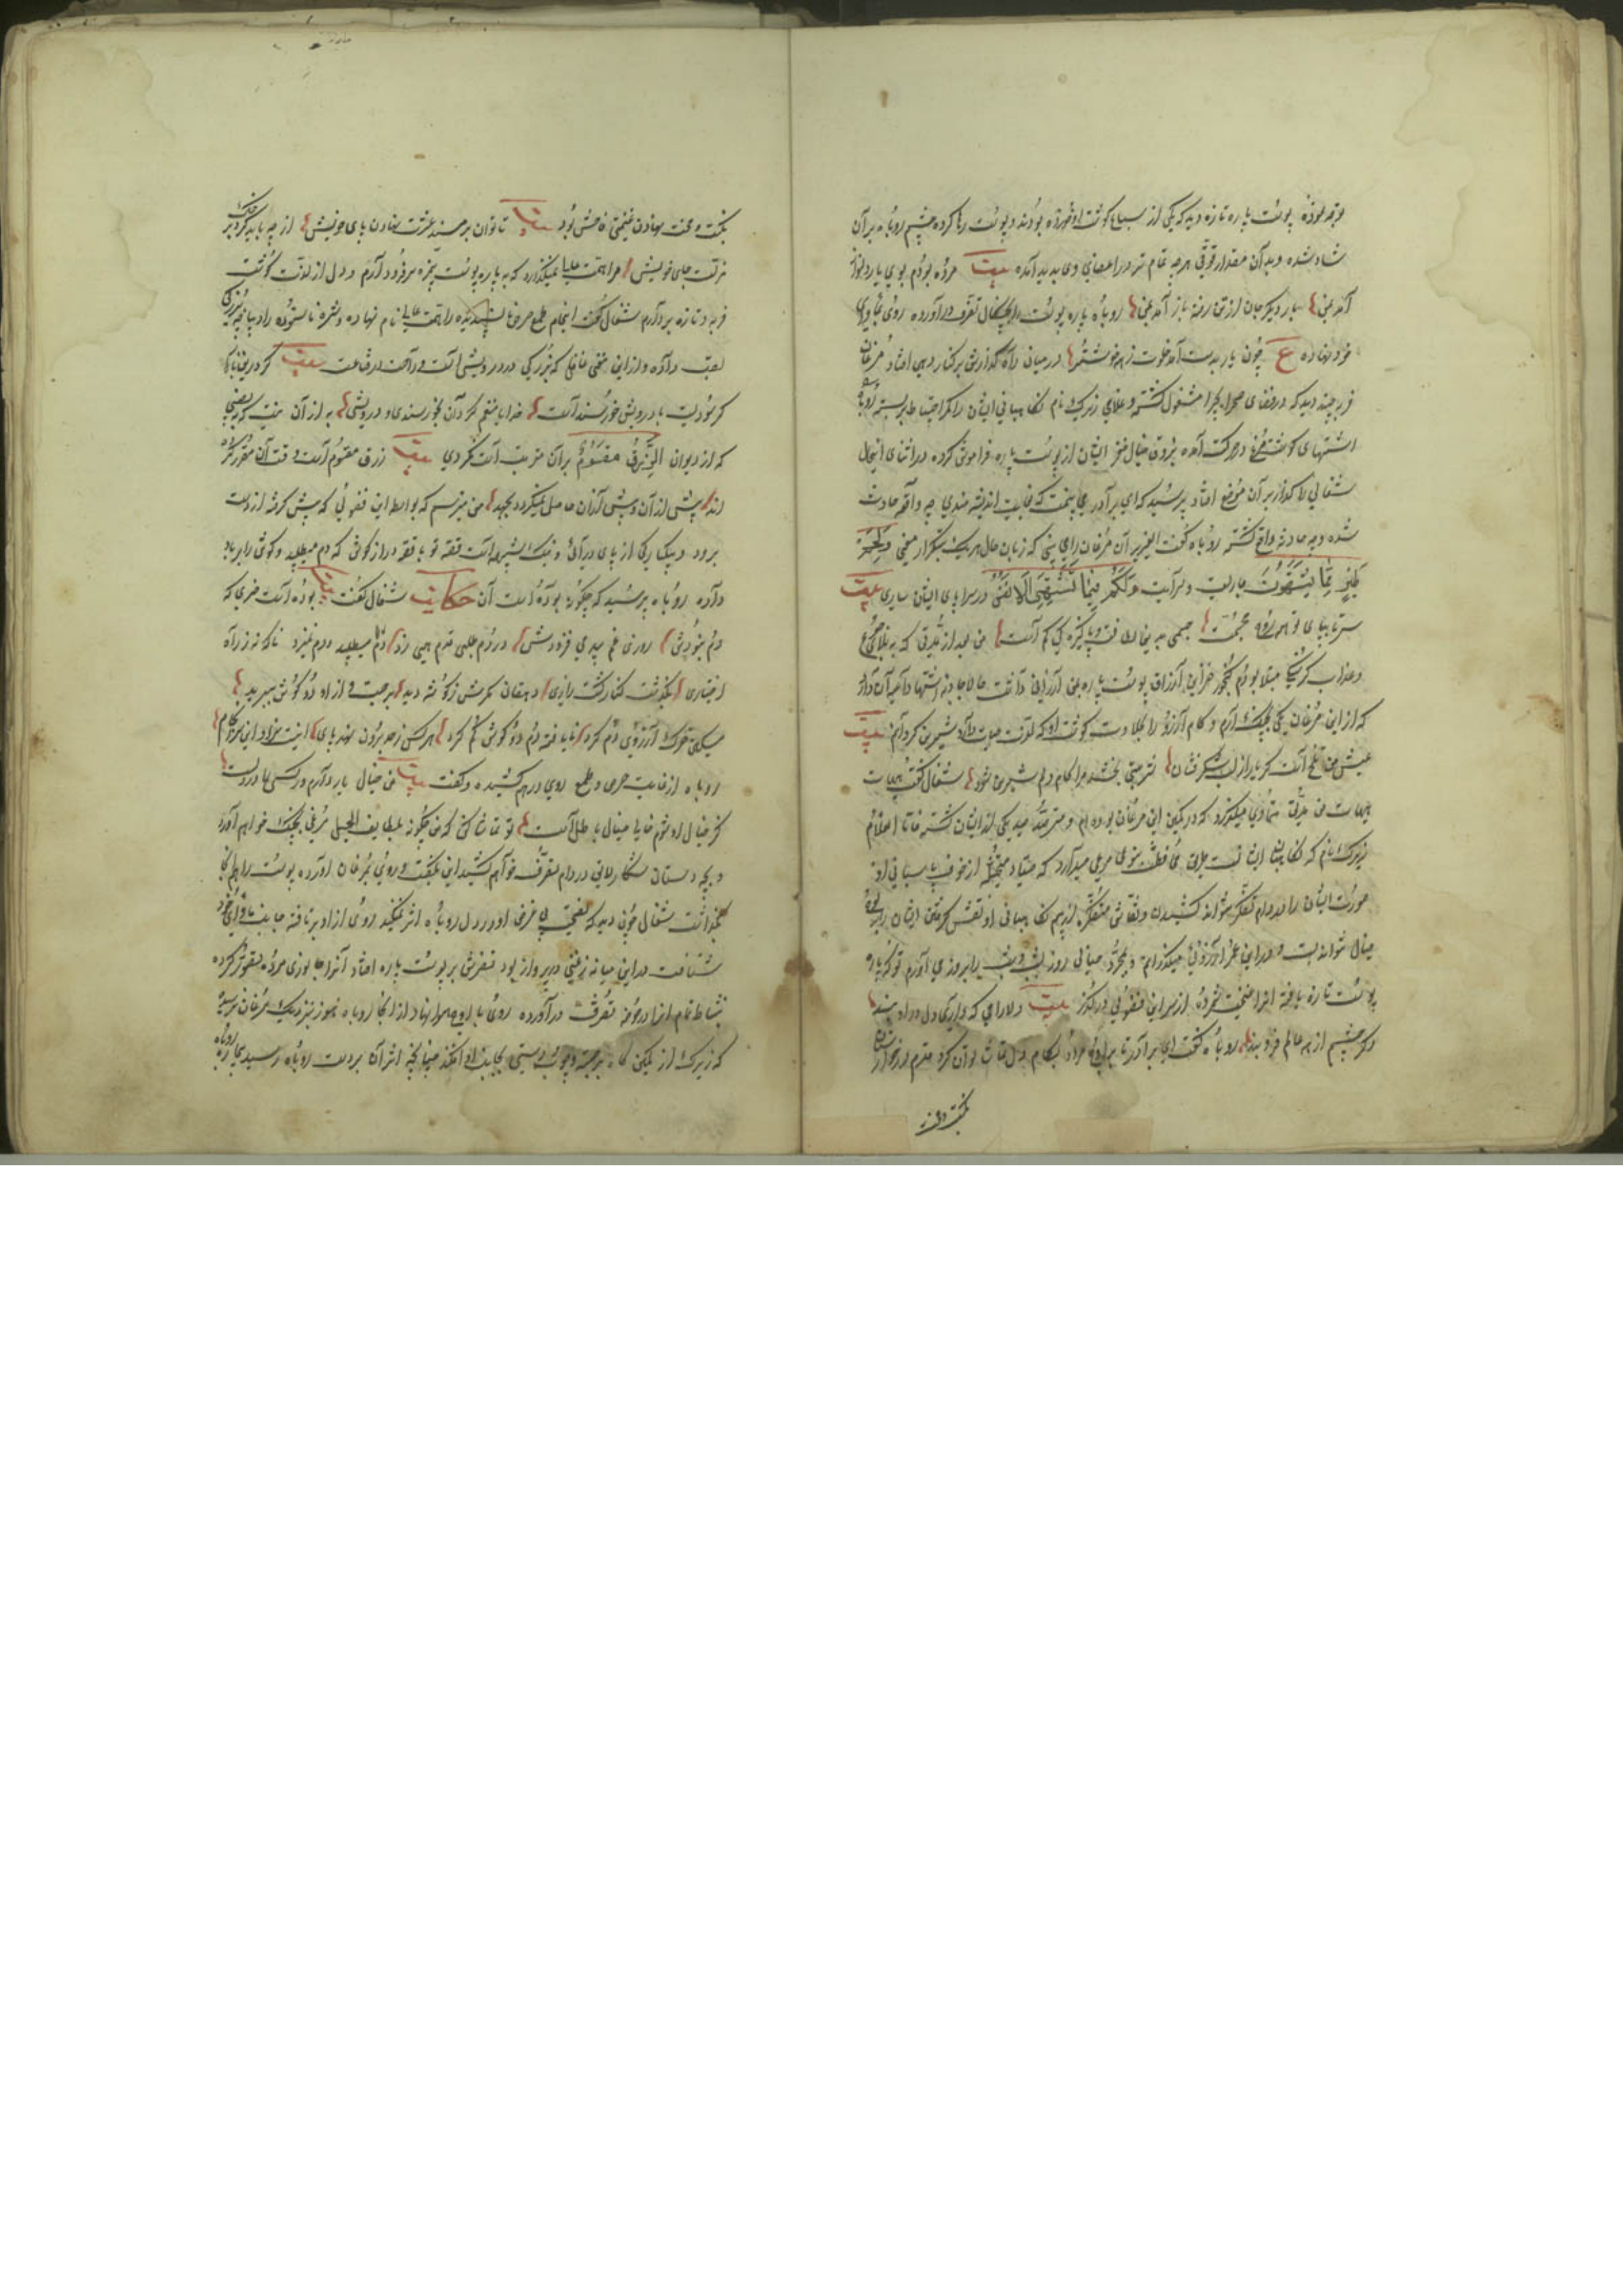 پوست پاره تازه دید که یکی از سباع گوشت او خورده بودند و پوست رها کرده چشم روباه بر آن
شاد شده و بدان مقدار قوتی هر چه تمام تر در اعضای وی پدید آمده بیت مرده بودم بوی یار دلنواز
آمد بمن بار دیگر جان از تن رفته باز آمد بمن روباه پاره پوست را بچنگال تصرف در آورده روی بماوای
خود نهاده ع چون یار بدست آمد خلوت ز همه خوشتر در میان راه گذارش بر کنار دهی افتاد مرغان
فربه چند دید که در فضای صحرا بچرا مشغول گشته و غلامی زیرک نام نگاهبانی ایشان را کمر احتیاط بر بسته روباه
اشتهای گوشت مرغ در حرکت آمده بذوق خیال مغز ایشان از پوست پاره فراموش کرده در اثنای اینحال
شغالی را گذار بر آن موضع افتاد پرسید که ای برادر می بینمت که بغایت اندیشه مندی چه واقعه حادث
شده و چه حادثه واقع گشته روباه گفت ای عزیز آن مرغان را می بینی که زبان حال هر یک بتکرار معنی وَلَحْمِ
طَيْرٍ مِمَّا يَشْتَهُونَ جاریست و سر آیت وَلَكُمْ فِيهَا مَا تَشْتَهِي الْأَنْفُسُ در سراپای ایشان ساری بیت
سر تا بپای تو همه روح مجسمست جسمی بدین لطافت و پاکیزگی کم است من بعد از مدتی که به بلای جوع
و عذاب گرسنگی مبتلا بودم گنجور خزاین ارزاق پوست پاره بمن ارزانی داشت حالا جاذبه اشتها داعیه آن دارد
که از این مرغان یکی بچنگ آرم و کام آرزو را بحلاوت گوشت او که لذت حیات دارد شیرین گردانم بیت
عیش من تلخ است گر یار از لب شکر فشان شربتی بخشد مرا کام دلم شیرین شود شغال گفت هیهات
هیهات من مدتی متمادی میگذرد که در کمین این مرغان بوده ام و مترصد صید یکی از ایشان گشته فاما غلام
زیرک نام که نگاهبان ایشانست طریق محافظت بنوعی مرعی میدارد که صیاد متخیله از خوف پاسبانی او
صورت ایشان را در دام تفکر نتواند کشیدن و نقاش متفکره از بیم نگاهبانی او نقش گرفتن ایشان بر لوح
خیال نتواند بست و من در این عمر آرزوی میگذرانم و بمجرد خیالی روز بشب و شب بروز می آورم تو که پاره
پوست تازه یافته آنرا غنیمت شمرده از سر این فضولی درگذر بیت دلارامی که داری دل در او بند
دگر چشم از همه عالم فرو بند روباه گفت ای برادر تا بر اوج مراد بکام دل
بنکبت و محنت نهادن بیت تا توان بر مسند عزت نهادن پای خویش از چه باید کرد بر خاک
مذلت جای خویش مرا همت علیا نمیگذارد که به پاره پوست بی مزه سر فرود آرم و دل از لذت گوشت
فربه و تازه بردارم شغال گفت ای خام طمع حرص ناپسندیده را همت عالی نام نهاده و شره ناستوده را دیباچه بزرگی
لقب داده و از این معنی غافلی که بزرگی در درویشی است و راحت در قناعت بیت گر در این بازار
گر سودیست با درویش خورسند است خدایا منعمم گردان بخورسندی و درویشی به از آن نیست که به نصیبی
که از دیوان الرِّزْقُ مَقْسُومٌ برات آن مرتب است گردی بیت رزق مقسوم است وقت آن مقرر کرده
اند پیش از آن و بیش از آن حاصل نمیگردد بجهد من میترسم که بواسطه این فضولی که پیش گرفته از دست
برود و یکبارگی از پای درآئی و نیک شبیه است قصه تو با قصه دراز گوش که دم میطلبید و گوش را بر باد
داد روباه پرسید که چگونه بوده است آن حکایت شغال گفت بیت بوده است خری که
دم نبودش روزی غم بیدمی فزودش در دم طلبی قدم همی زد دم میطلبید و دم نمیزد ناگه نه ز راه
اختیاری بگذشت کنار کشت زاری دهقان مگرش ز گوشه دید برجست و از او دو گوش ببرید
مسکین خرک آرزوی دم کرد نایافته دم دو گوش گم کرد هر کس ز حد برون نهد پای اینست سزای او سرانجام
روباه از غایت حرص و طمع روی درهم کشیده و گفت بیت من خیال یار دارم
تو تماشا کن که من چگونه بلطایف الحیل مرغی بچنگ خواهم آورد
و بچه دستان شکار لایق در دام تصرف خواهم کشید این بگفت و روی بمرغان آورده پوست را هم آنجا
بگذاشت شغال چون دید که نصیحت بی غرض او در دل روباه اثر نمیکند روی از او برتافته بجانب ماوای خود
شتافت در این میانه زغنی در پرواز بود نظرش بر پوست پاره افتاد آنرا جانوری مرده تصور کرده
بنشاط تمام آنرا در حوزه تصرف در آورده روی باوج هوا نهاد از آنجا روباه هنوز نزدیک مرغان نرسیده
که زیرک از کمین گاه برجسته و چوب دستی بجانب او افکند چنانچه اثر آن بر دست روباه رسید بیچاره روباه